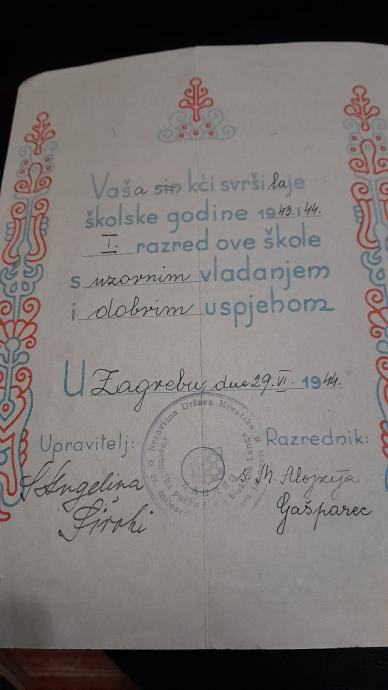 Vaša sin kći svršila je
školske godine 1943.i 44.
I. razred ove škole
s uzornim vladanjem
i dobrim uspjehom
U Zagrebu, dne 29. VI. 1944.
Upravitelj: Razrednik:
S. Angelina S. M. Alojzija
Široki Gašparec
Nezavisna Država Hrvatska
ZAGREB